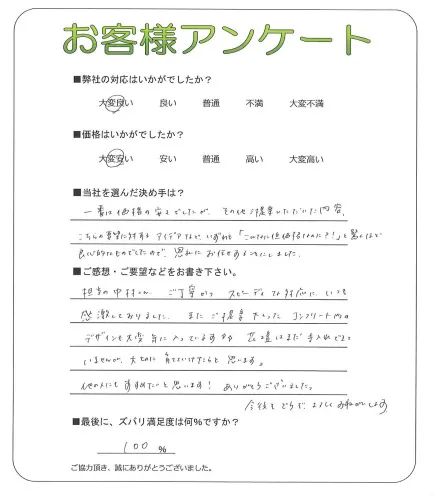 お客様アンケート
■弊社の対応はいかがでしたか?
大変良い 良い 普通 不満 大変不満
■価格はいかがでしたか?
大変安い 安い 普通 高い 大変高い
■当社を選んだ決め手は?
一番は価格の安さでしたが、その他ご提案いただいた内容、
こちらの要望に対するアイデアなど、いずれも「こんなに低価格なのに?!」と驚くほど
良心的なものでしたので、思わずお任せすることにしました。
■ご感想・ご要望などをお書き下さい。
担当の中村さん、ご丁寧かつスピーディな対応に、いつも
感激しておりました。またご提案下さったコンクリート内の
デザインも大変気に入っています 花壇はまだ手入れできて
いませんが、大切に育てていけたらと思います。
他の人にもすすめたいと思います! ありがとうございました。
今後ともどうぞ、よろしくお願いします
■最後に、ズバリ満足度は何%ですか?
100 %
ご協力頂き、誠にありがとうございました。